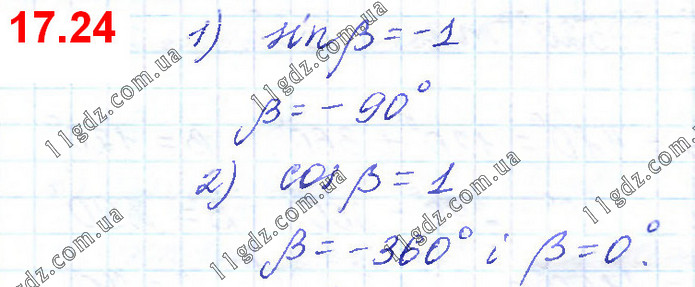 17.24
1) sin β = -1
β = -90°
2) cos β = 1
β = -360° і β = 0°.
11gdz.com.ua
11gdz.com.ua
11gdz.com.ua
11gdz.com.ua
11gdz.com.ua
11gdz.com.ua
11gdz.com.ua